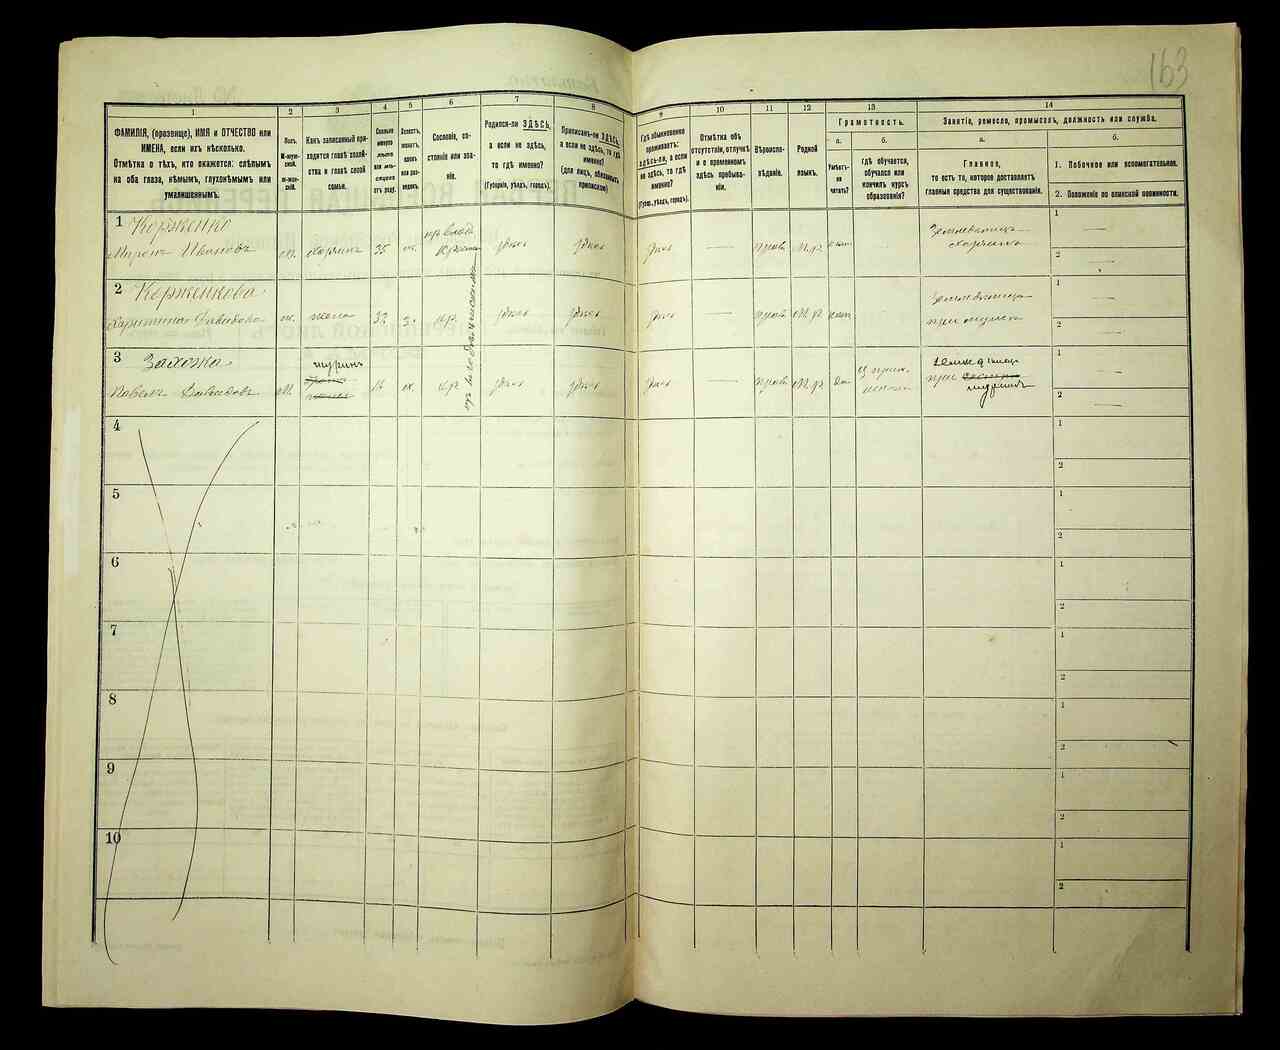 163
1
2
3
4
5
6
7
8
9
10
11
12
13
14
ФАМИЛІЯ, (прозвище), ИМЯ и ОТЧЕСТВО или
ИМЕНА, если ихъ нѣсколько.
Отмѣтка о тѣхъ, кто окажется: слѣпымъ
на оба глаза, нѣмымъ, глухонѣмымъ или
умалишеннымъ.
Полъ.
М-мужской.
ж-женскій.
Какъ записанный приходится
главѣ хозяйства и главѣ своей
семьи.
Сколько
минуло
лѣтъ
или мѣсяцевъ
отъ роду.
Холостъ,
женатъ,
вдовъ
или разведенъ.
Сословіе, состояніе
или званіе.
Родился-ли ЗДѢСЬ,
а если не здѣсь,
то гдѣ именно?
(Губернія, уѣздъ, городъ).
Приписанъ-ли ЗДѢСЬ,
а если не здѣсь, то гдѣ
именно?
(для лицъ, обязанныхъ
припискою)
Гдѣ обыкновенно
проживаетъ:
здѣсь-ли, а если
не здѣсь, то гдѣ
именно?
(Губерн., уѣздъ, городъ).
Отмѣтка объ
отсутствіи, отлучкѣ
и о временномъ
здѣсь пребываніи.
Вѣроисповѣданіе.
Родной
языкъ.
Грамотность.
а.
б.
Умѣетъ-ли
читать?
гдѣ обучается,
обучался или
кончилъ курсъ
образованія?
Занятіе, ремесло, промыселъ, должность или служба.
а.
б.
Главное,
то есть то, которое доставляетъ
главныя средства для существованія.
1. Побочное или вспомогательное.
2. Положеніе по воинской повинности.
1
Корженко
Миронъ Ивановъ
м.
хозяинъ
35
ж.
здѣсь
здѣсь
здѣсь
прав.
М.р.
1
2
2
Корженкова
Харитина Давидова
ж.
жена
32
з.
кр.
здѣсь
здѣсь
здѣсь
прав.
М.р.
при мужѣ
1
2
3
Захожа
Павелъ Давидовъ
м.
шуринъ
16
х.
кр.
здѣсь
здѣсь
здѣсь
прав.
М.р.
да
при
1
2
4
1
2
5
1
2
6
1
2
7
1
2
8
1
2
9
1
2
10
1
2